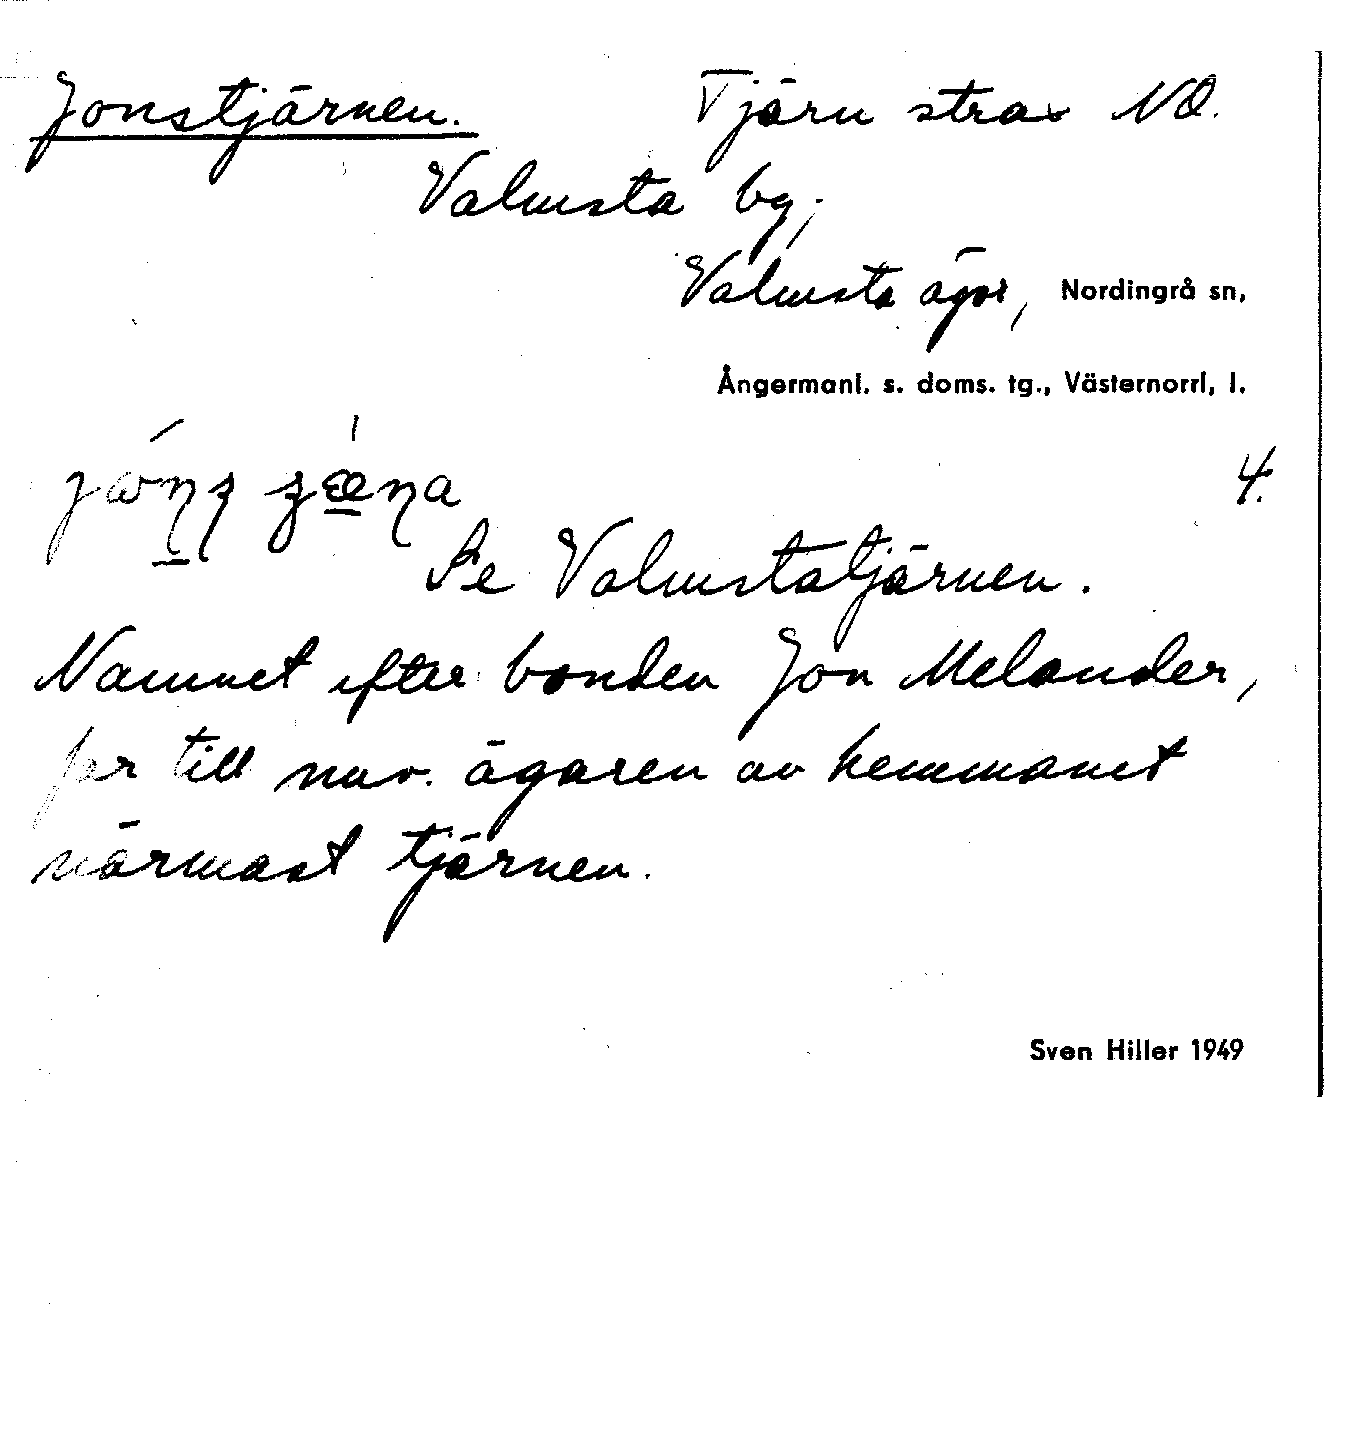 Jonstjärnen. Tjärn strax NO.
Valmsta by,
Valmsta ägor, Nordingrå sn,
Ångermanl. s. doms. tg., Västernorrl, l.
4.
Se Valmstatjärnen.
Namnet efter bonden Jon Melander,
far till nuv. ägaren av hemmanet
närmast tjärnen.
Sven Hiller 1949